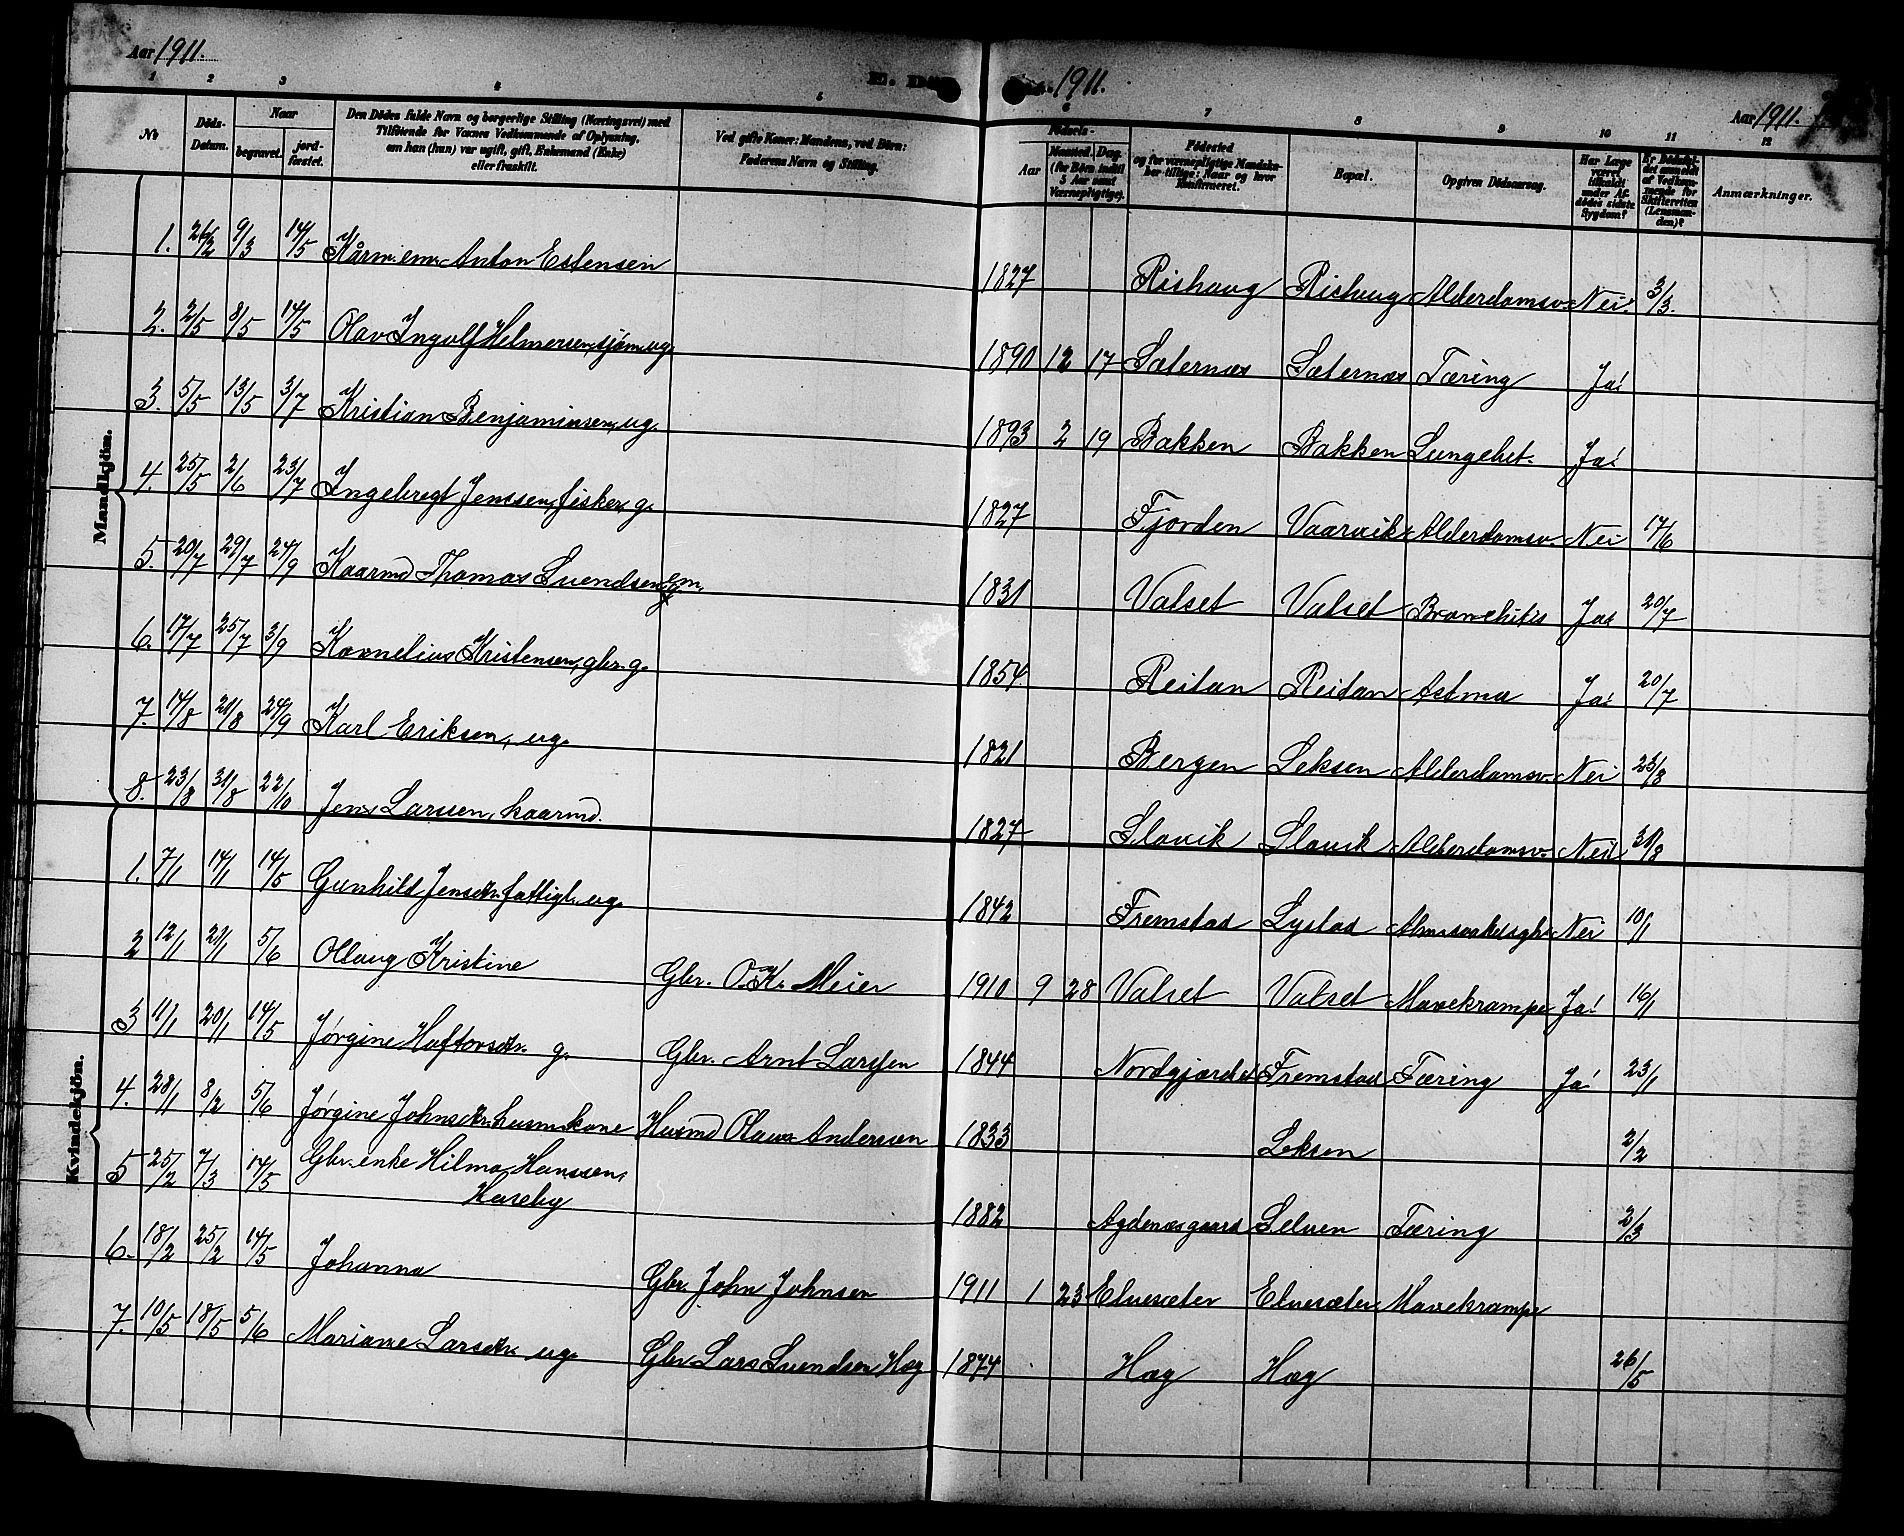 Aar 1911.
E. D 1911.
Aar 1911.
1 2 3 4 5 6 7 8 9 10 11 12
No
Døds-Datum.
Naar
begravet.
jord-fæstet.
Den Dødes fulde Navn og borgerlige Stilling (Næringsvei) med
Tilføiende for Voxnes Vedkommende af Oplysning,
om han (hun) var ugift, gift, Enkemand (Enke)
eller fraskilt.
Ved gifte Koner: Mandens, ved Børn:
Faderens Navn og Stilling.
Fødsels-
Aar
Maaned. Dag.
(for Børn indtil
5 Aar samt
Værnepligtige).
Fødested
og for værnepligtige Mandskaber tillige: Naar og hvor
konfirmeret.
Bopæl.
Opgiven Dødsaarsag.
Har Læge
været
tilkaldt
under Afdødes sidste
Sygdom?
Er Dødsfaldet anmeldt
af Vedkommende for
Skifteretten
(Lensmanden)?
Anmærkninger.
Mandkjön.
1. 26/2 9/3 14/5 Kårm. em. Anton Estensen 1827 Rishaug Rishaug Alderdomsv. Nei. 3/3.
2. 2/5 8/5 14/5 Olav Ingolf Helmersen, sjøm. ug. 1890 12 17 Sæternes Sæternes Tæring Ja!
3. 5/5 13/5 3/7 Kristian Benjaminsen, ug. 1893 2 19 Bakken Bakken Lungebet. Ja!
4. 25/5 2/6 23/7 Ingebregt Jenssen, fisker, g. 1827 Fjorden Vaarvik Alderdomsv. Nei 17/6
5. 20/7 29/7 24/9 Kaarmd Thomas Svendsen em. 1831 Valset Valset Bronchitis Ja! 20/7
6. 17/7 25/7 3/9 Kornelius Kristensen, gbr. g. 1854 Reitan Reitan Astma Ja! 20/7
7. 14/8 21/8 24/9 Karl Eriksen, ug. 1821 Bergen Leksen Alderdomsv. Nei 25/8
8. 23/8 31/8 22/10 Jens Larssen, kaarmd. 1827 Slavik Slavik Alderdomsv. Nei 31/8
Kvindekjön.
1. 7/1 14/1 14/5 Gunhild Jensdtr. fattigl. ug. 1842 Fremstad Lystad Nei 10/1
2 12/1 21/1 5/6 Ollaug Kristine Gbr. O. K. Meier 1910 9 28 Valset Valset Mavekrampe Ja! 16/1
3 11/1 20/1 14/5 Jørgine Haftorsdtr. g. Gbr. Arnt Larssen 1844 Nordgjærdet Fremstad Tæring Ja! 23/1
4. 28/1 8/2 5/6 Jørgine Johnsdtr. husm.kone Husmd Olaus Anderssen 1833 Leksen 2/2
5 25/2 7/3 14/5 Gbr. enke Hilma Hanssen,
Haseby 1882 Agdenæsgaard Selven Tæring 2/3
6. 18/2 25/2 14/5 Johanna Gbr. John Johnsen 1911 1 23 Elvesæter Elvesæter Mavekrampe
7. 10/5 18/5 5/6 Mariane Larsdtr. ug. Gbr. Lars Svendsen Hæg 1874 Hæg Hæg 26/5